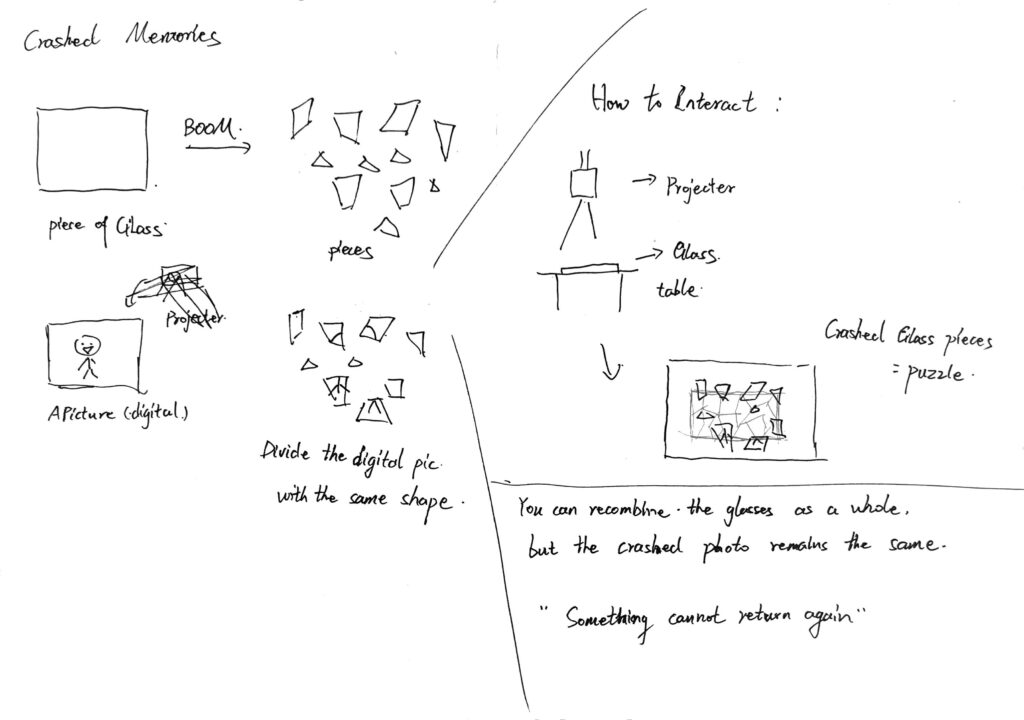 Crashed Memories
BOOM.
piece of Glass.
pieces
Projecter.
A Picture (digital.)
Divide the digital pic.
with the same shape.
How to Interact :
Projecter
Glass.
table.
Crashed Glass pieces
= puzzle.
You can recombine. the glasses as a whole.
but the crashed photo remains the same.
" Something cannot return again "